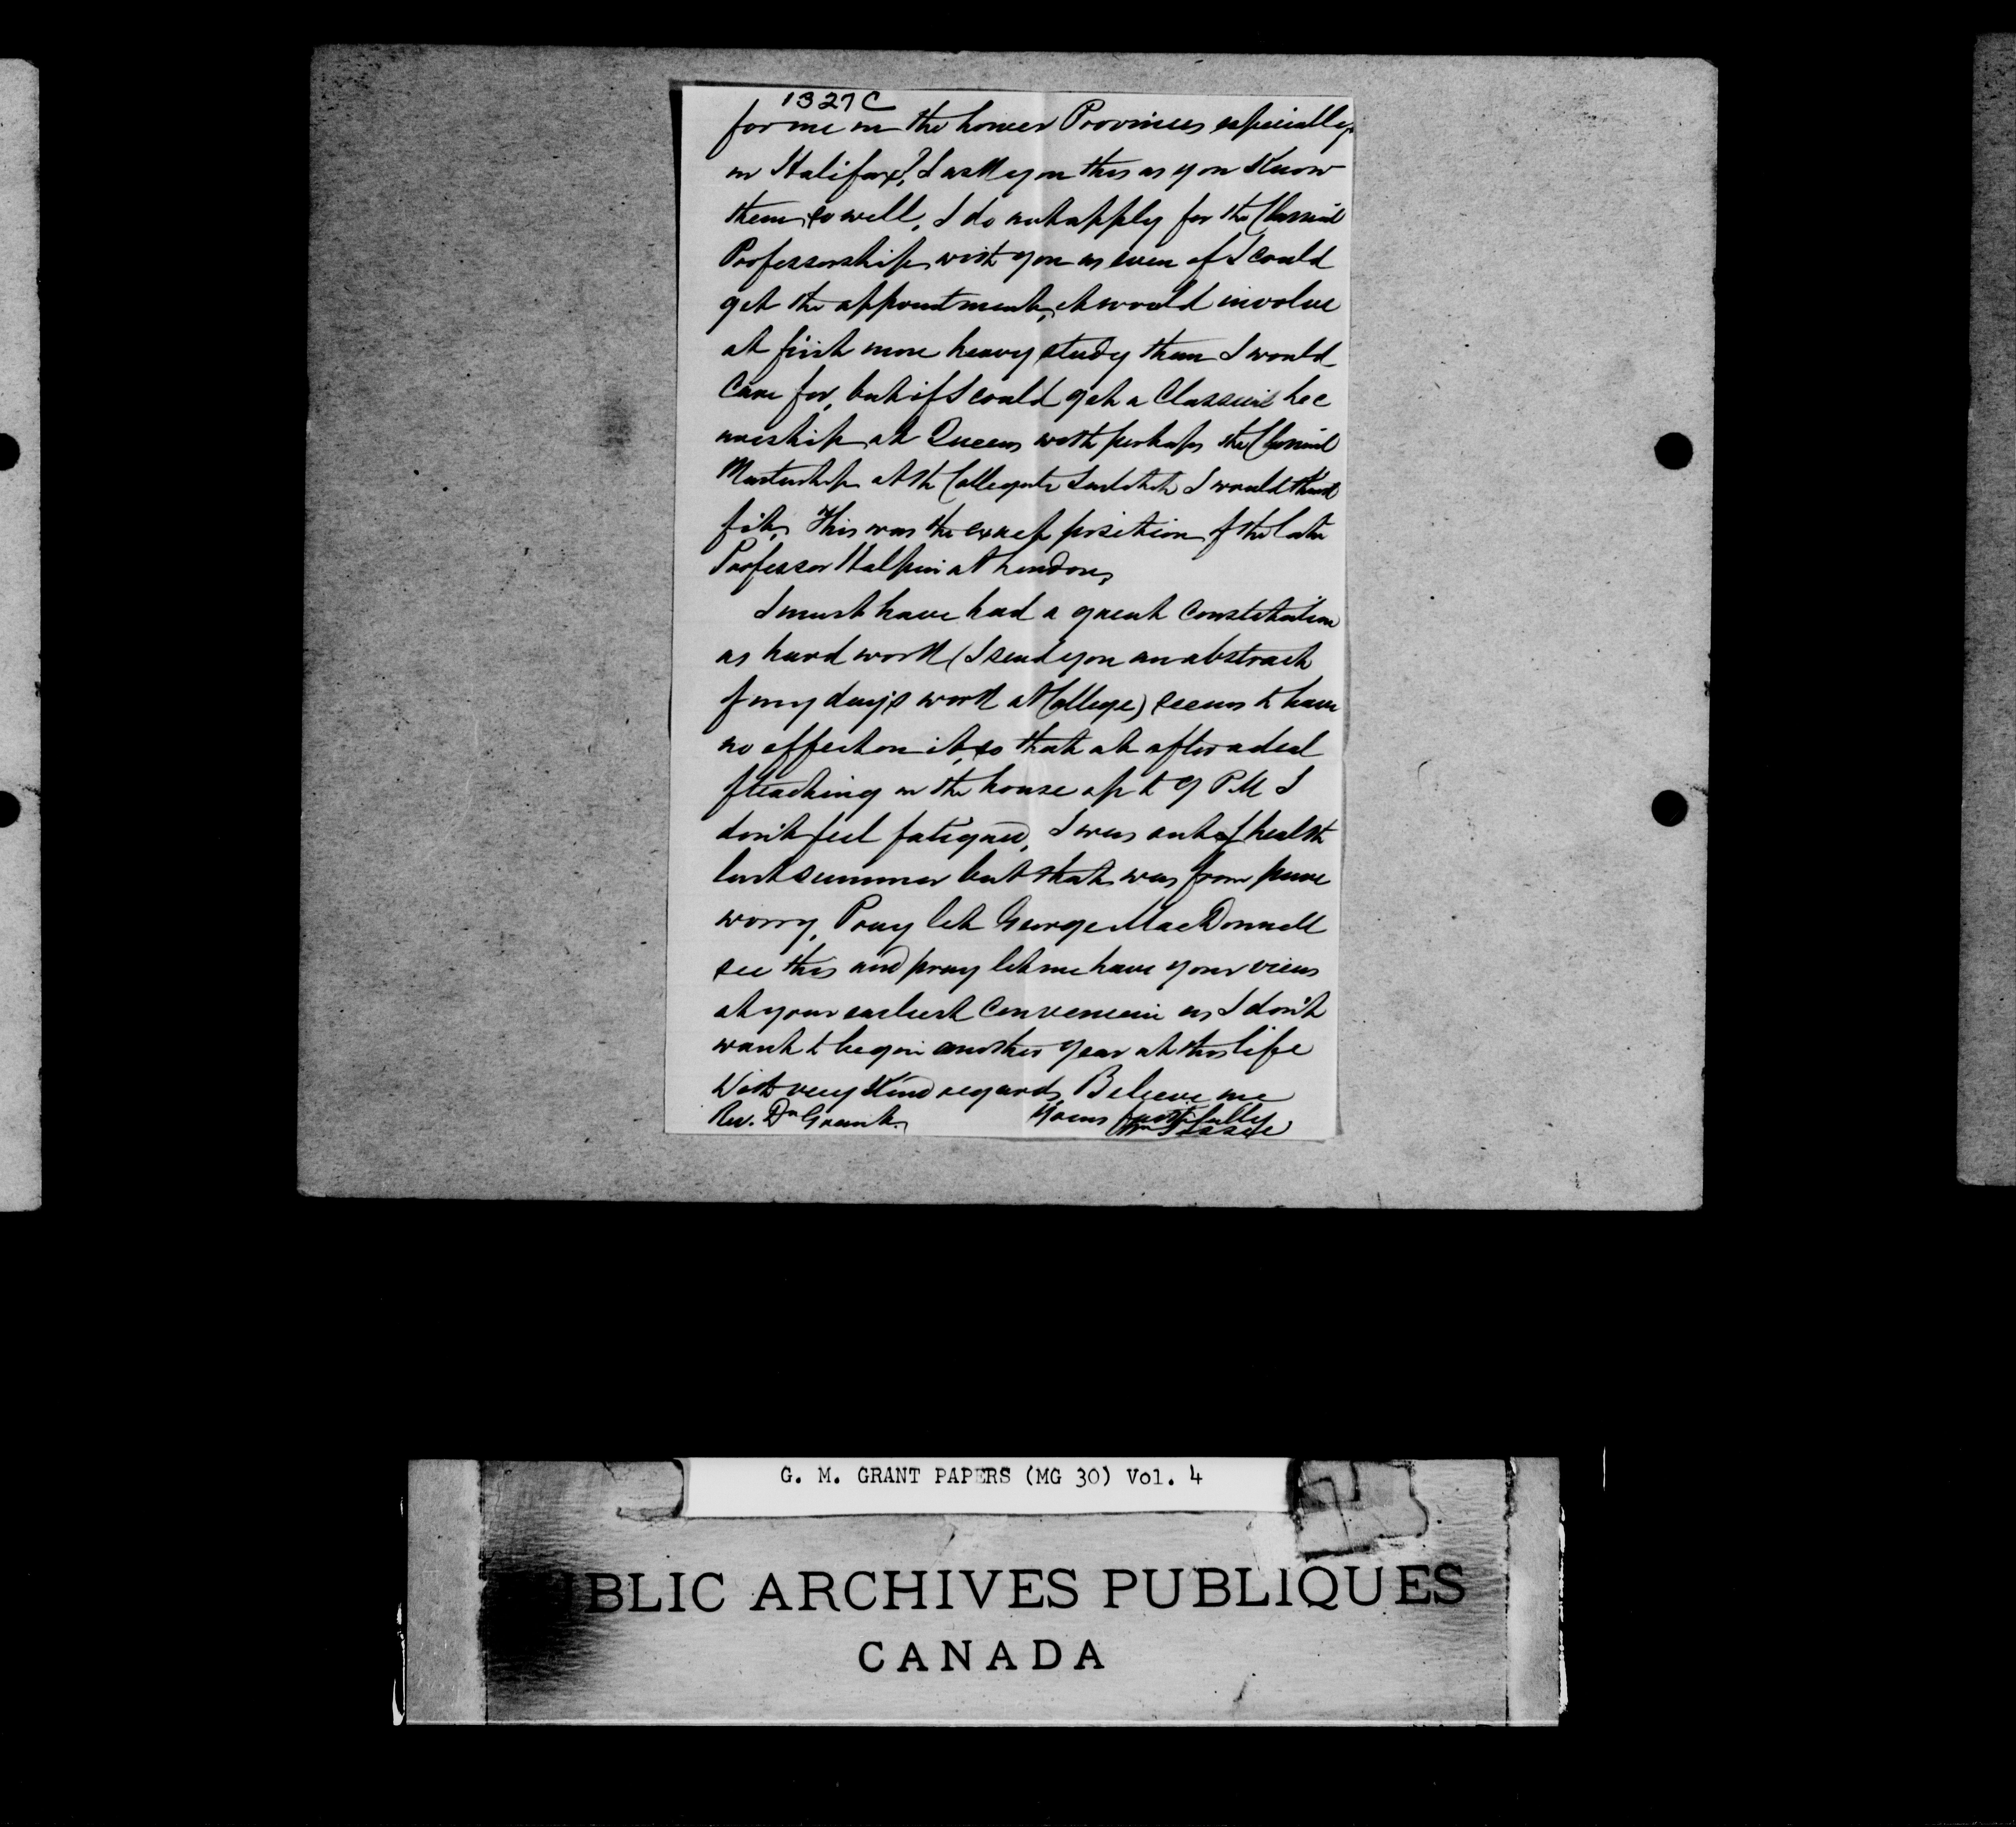 1327 C
for me in the Lower Provinces especially
in Halifax? I ask you this as you know
them so well. I do not apply for the Classical
Professorship with you as even if I could
get the appointment, it would involve
at first more heavy study than I would
care for, but if I could get a Classical Lec
ureship at Queens with perhaps the Classical
Mastership at the Collegiate Institute I would think
fit. This was the exact position of the late
Professor Halpin at London,
I must have had a great Constitution
as hard work (I send you an abstract
of my day's work at College) seems to have
no effect on it, so that at after a deal
of teaching in the house up to 9 PM I
don't feel fatigued, I was out of health
last summer but that was from pure
worry, Pray let George MacDonnell
see this and pray let me have your views
at your earliest convenience as I don't
want to begin another year at this life
With very kind regards, Believe me
Rev. Dr Grant. Yours faithfully
G. M. GRANT PAPERS (MG 30) Vol. 4
BLIC ARCHIVES PUBLIQUES
CANADA